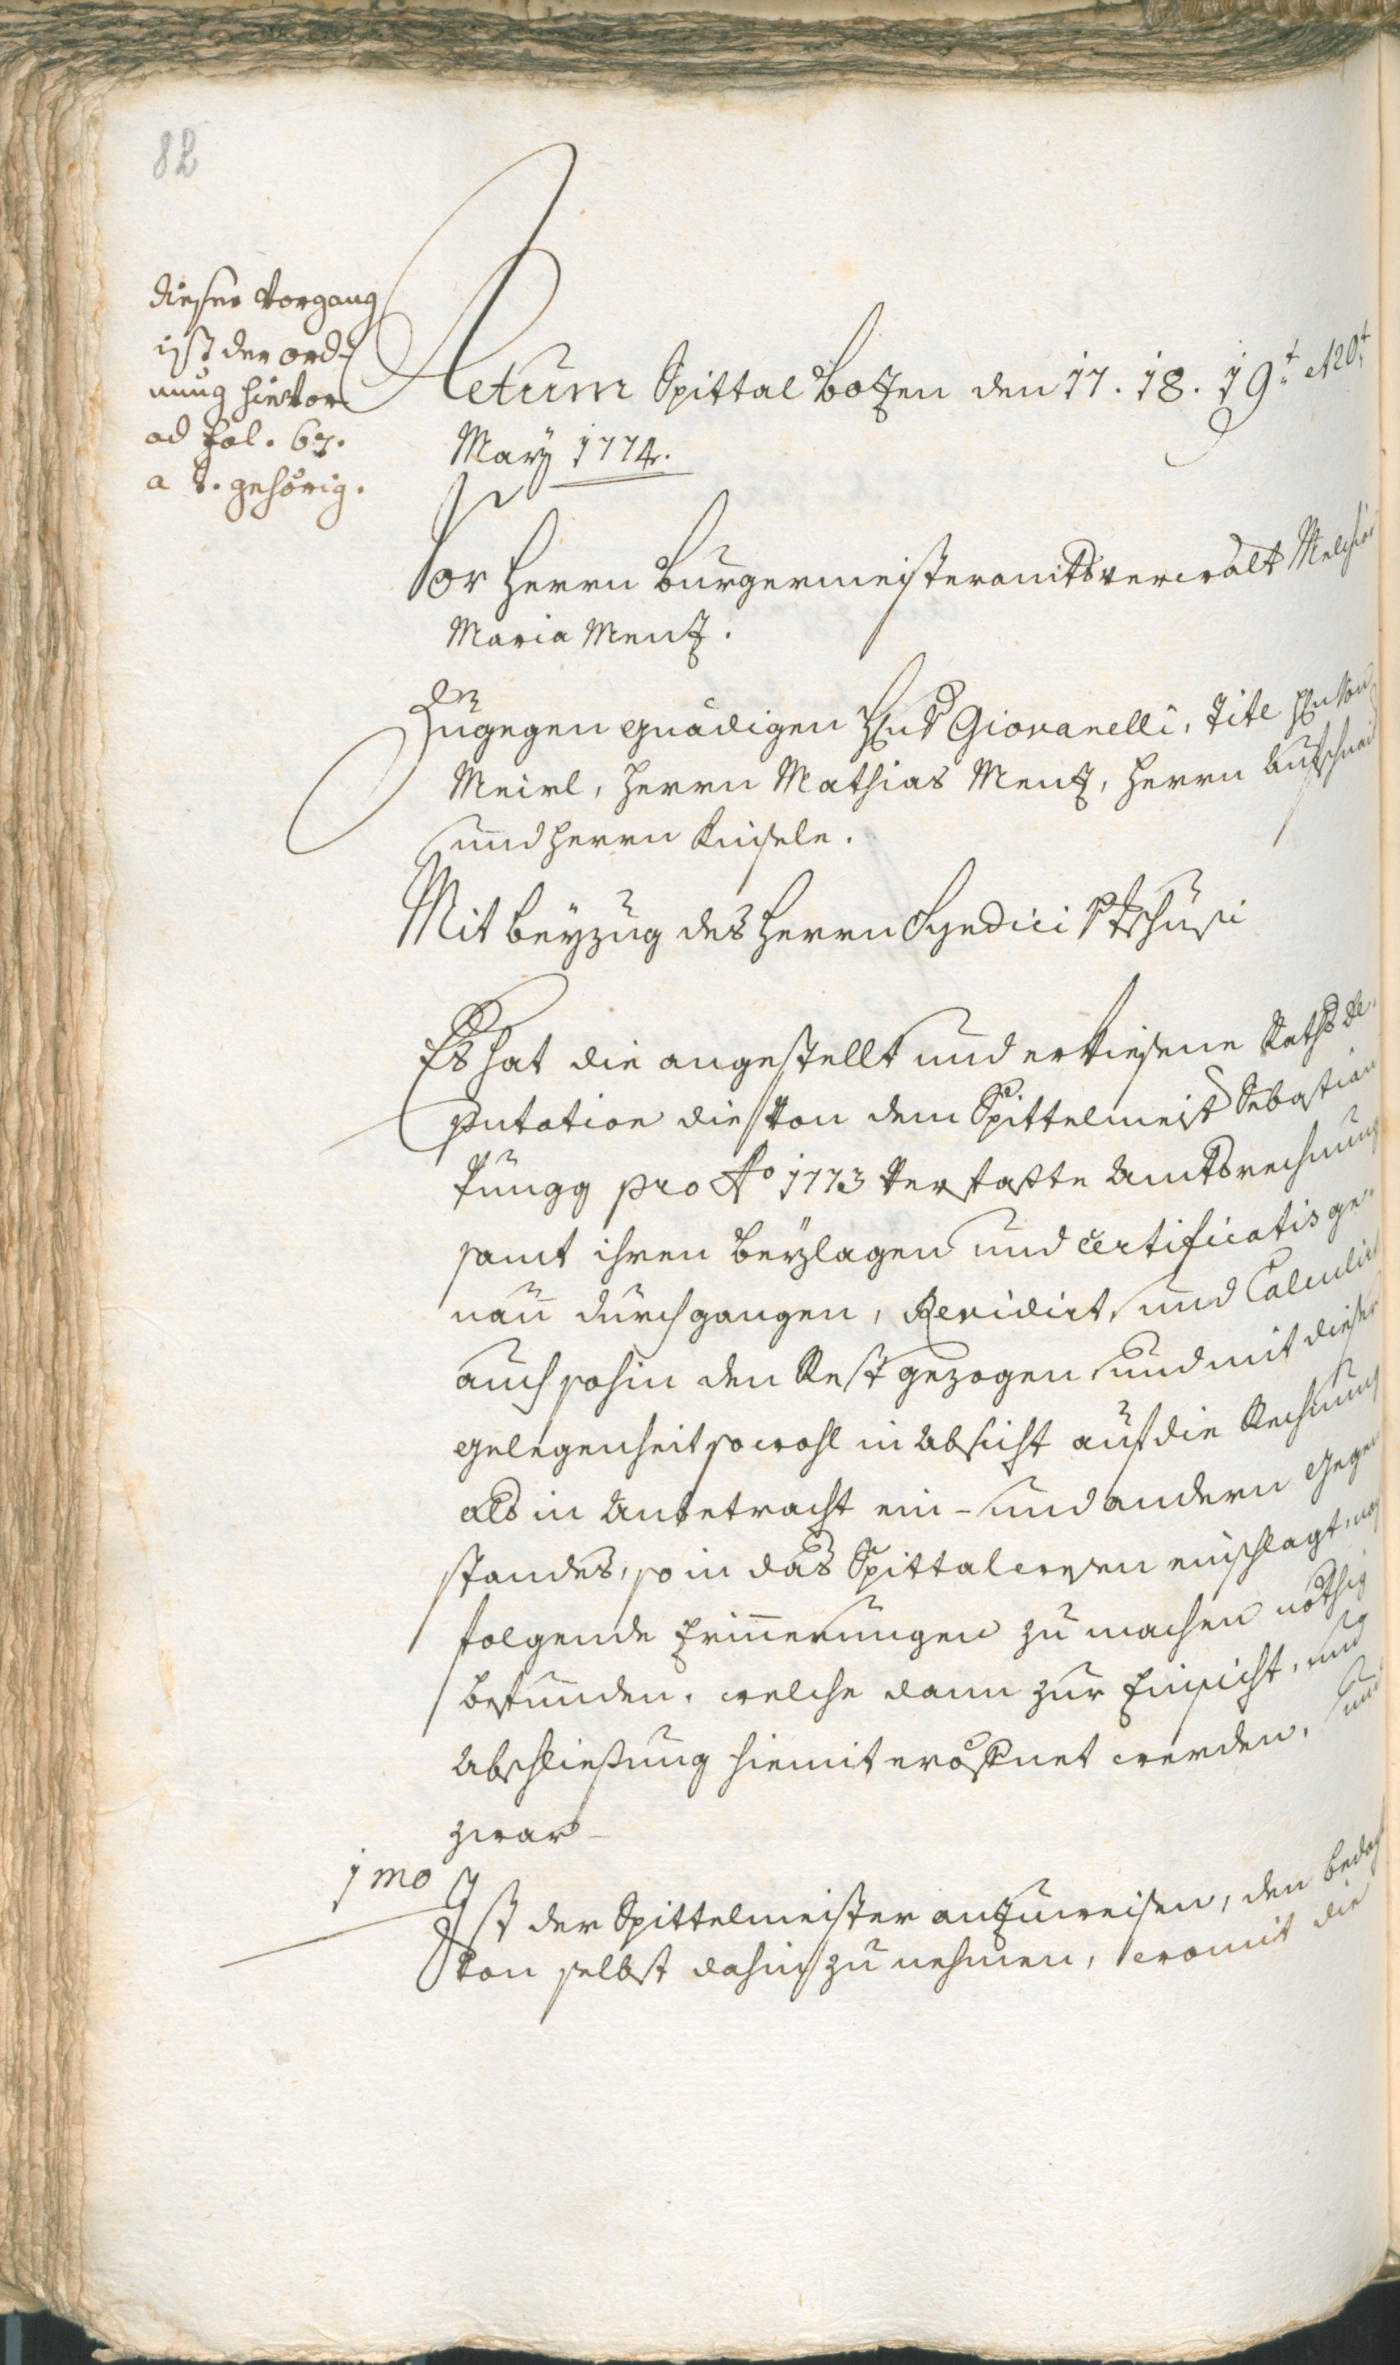 82
dieser Vorgang
ist der ord-
nung hievor
ad Fol. 67.
a t. gehörig.
Actum Spittal Bozen den 17. 18. 19t
Maÿ 1774.
Vor Herrn Burgermeisteramtsverwalt Melchior
Maria Menz.
Zugegen gnädigen Giovanelli, Titl
Meirl, Herrn Mathias Menz, Herrn
und Herrn Kuisele.
Mit beÿzug des Herrn Syndici
Es hat die angestellt und erkiesene Raths de-
putation die von dem Spittelmeistr Sebastian
Tungg pro Ao 1773 verfaßte Amtsrechnung
samt ihren Beÿlagen und Certificatis ge-
nau durchgangen, Revidirt, und Calculirt
auch sohin den Rest gezogen und mit dieser
gelegenheit sowohl in Absicht auf die Rechnung
als in Anbetracht ein- und andern gegen
standes, so in das Spittalwesen einschlagt, nach
folgende Erinnerungen zu machen nöthig
befunden, welche dann zur Einsicht, und
Abschließung hiemit eröffnet werden, und
zwar
1mo Ist der Spittelmeister anzuweisen, den bedacht
von selbst dahin zu nehmen, womit die